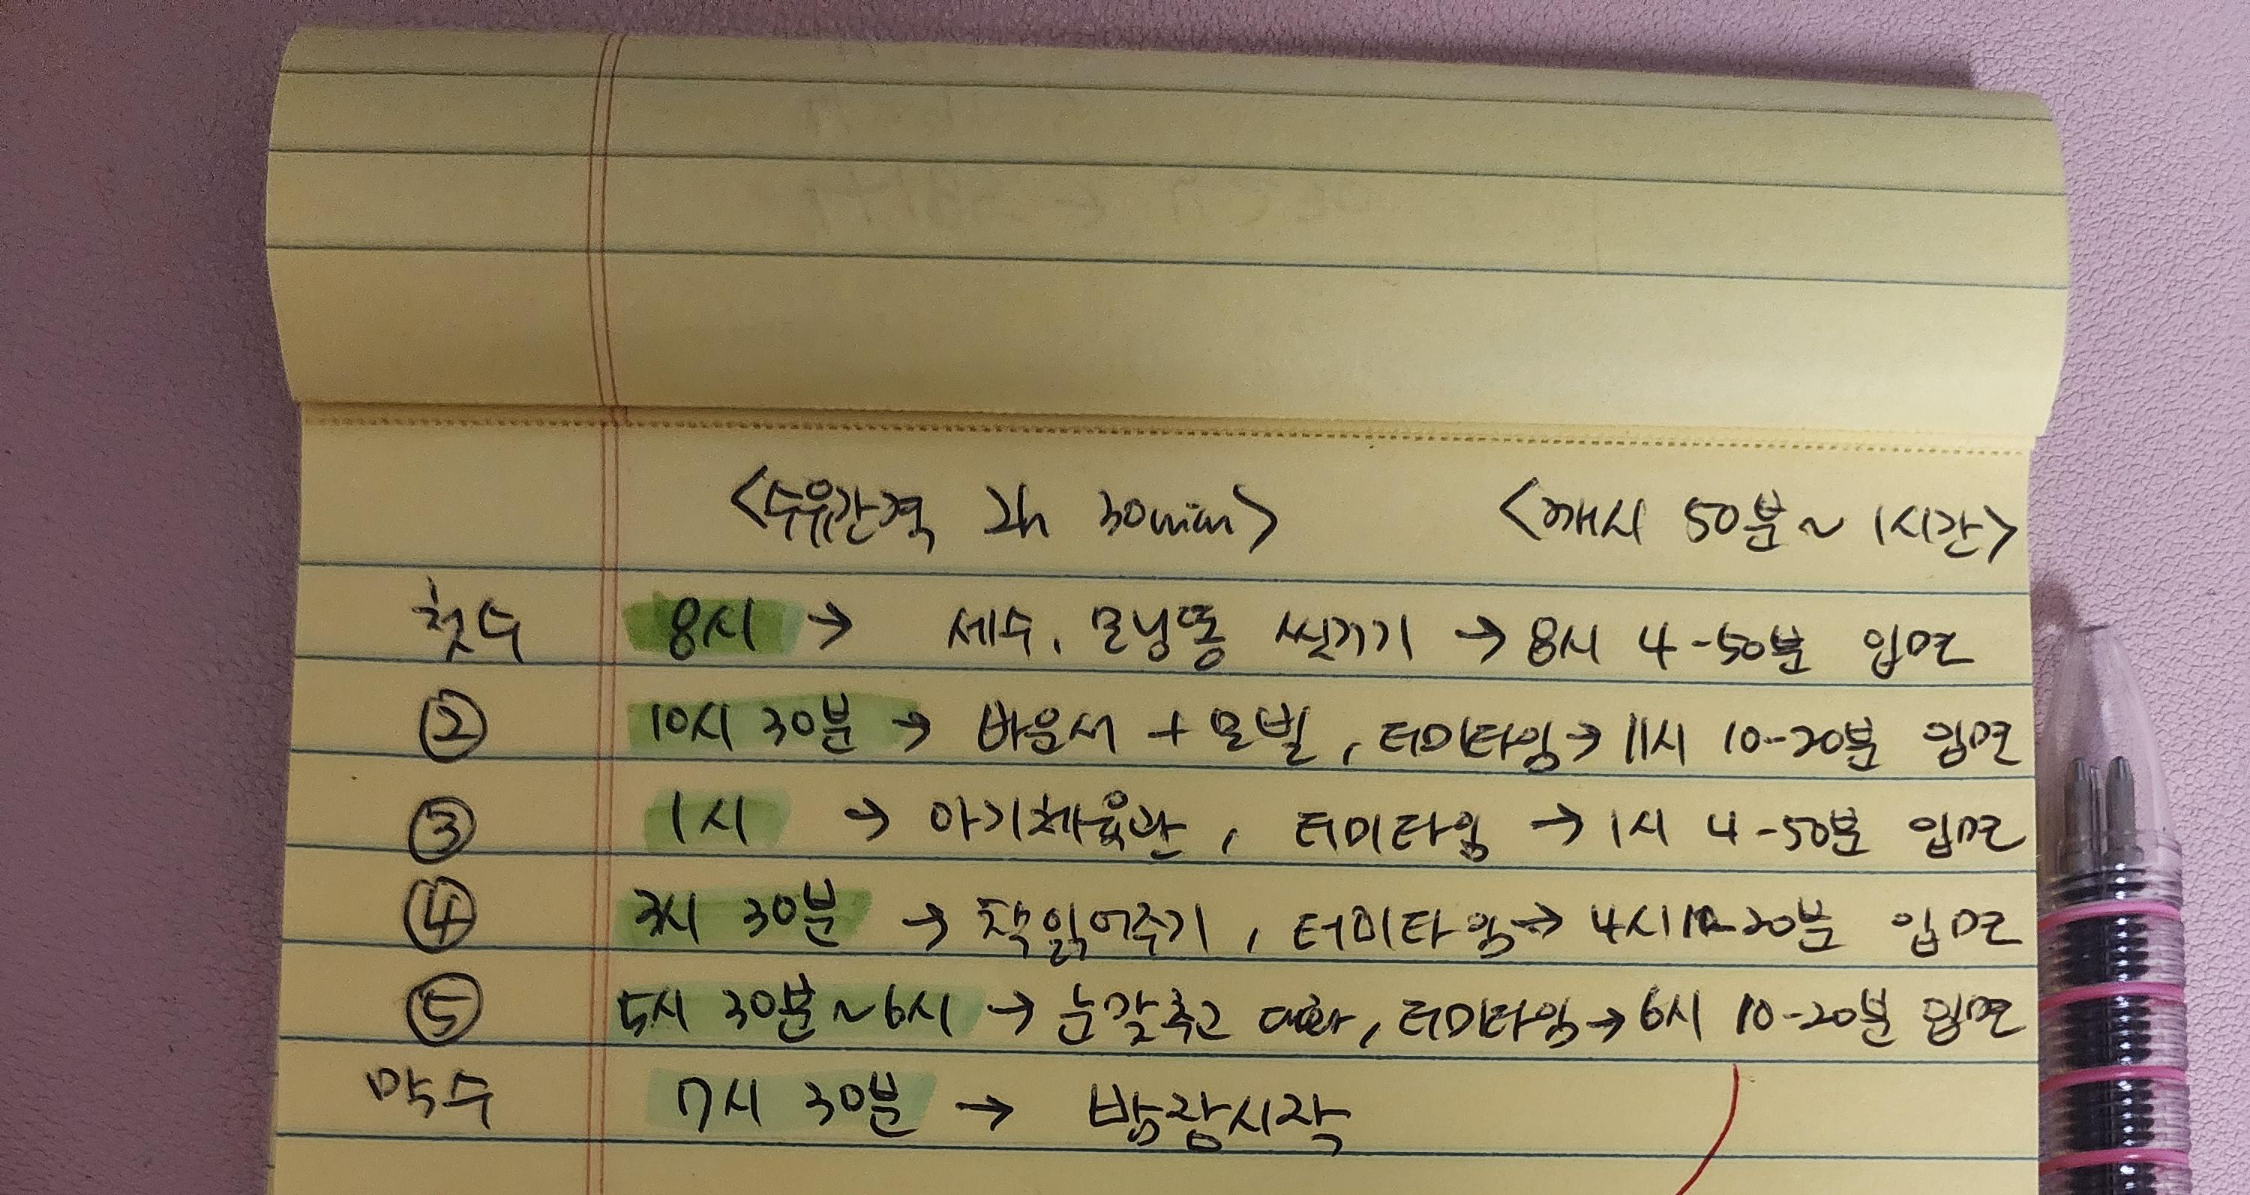 <수유간격 2h 30min> <깨시 50분~1시간>
첫수 8시 → 세수, 모닝똥 씻기기 → 8시 4-50분 입면
② 10시 30분 → 바운서 + 모빌, 터미타임 → 11시 10-20분 입면
③ 1시 → 아기체육관, 터미타임 → 1시 4-50분 입면
④ 3시 30분 → 책읽어주기, 터미타임 → 4시 10-20분 입면
⑤ 5시 30분~6시 → 눈맞추고 대화, 터미타임 → 6시 10-20분 입면
막수 7시 30분 → 밤잠시작